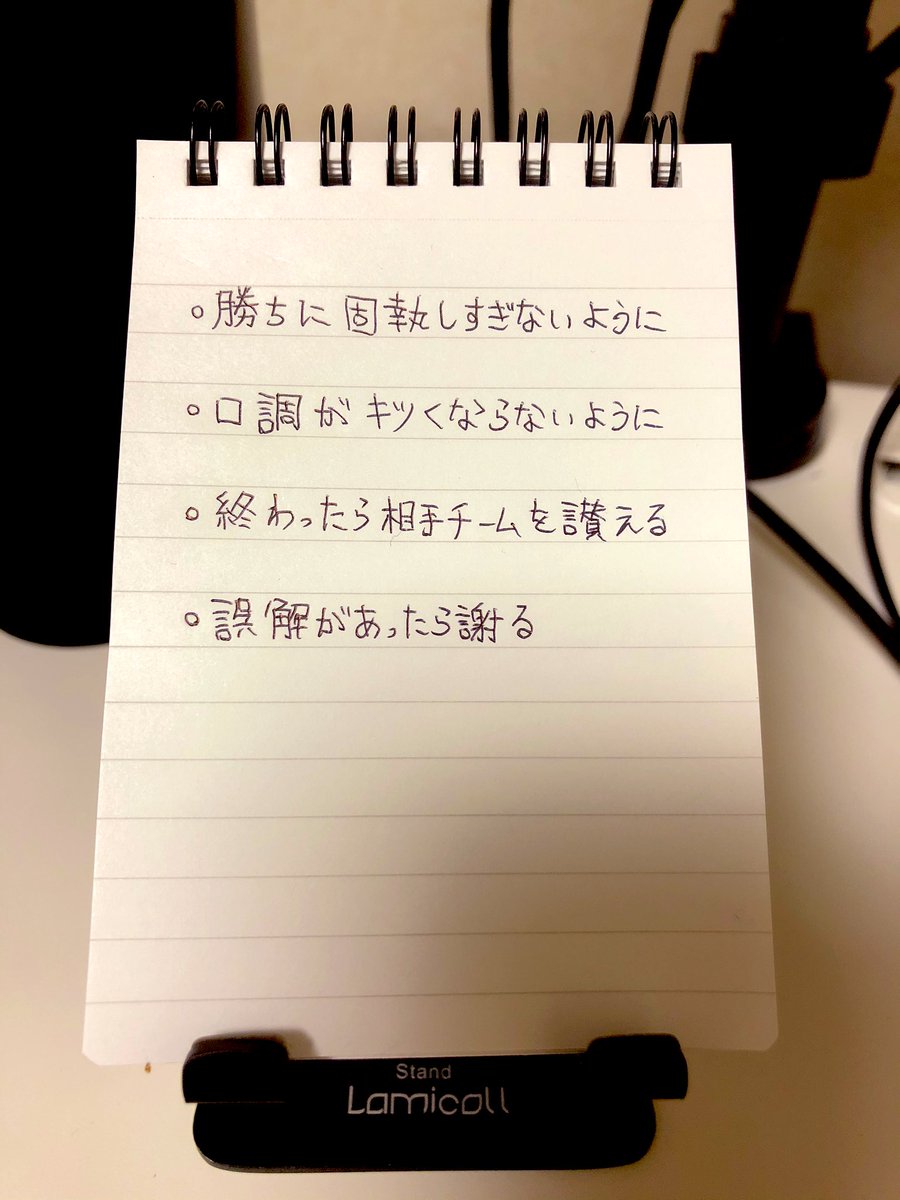 。勝ちに固執しすぎないように
。口調がキツくならないように
。終わったら相手チームを讃える
。誤解があったら謝る
Stand
Lamicall